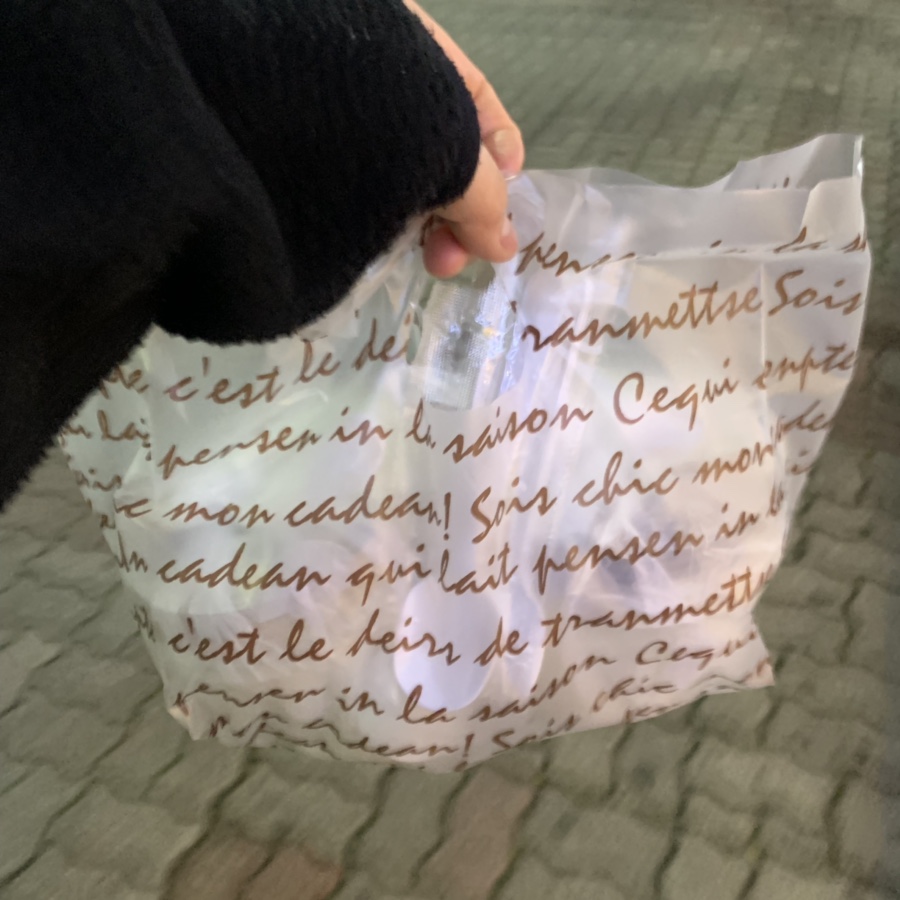 la
tranmettse Sois
c'est le dei
saison Cequi enpte
pensen in la
mon cadean! Sois chic mon
cadean qui lait pensen in
c'est le deirs de tranmettse
pensen in la saison Cequi
cadean! Sois chic